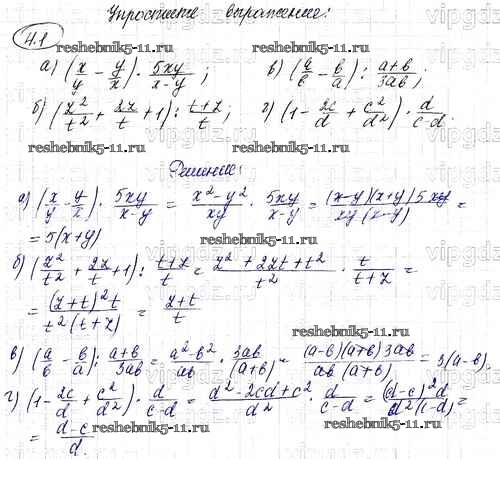 Упростите выражение:
4.1
reshebnik5-11.ru
а) (x/y - y/x) · 5xy/(x-y); в) (a/b - b/a) : (a+b)/3ab;
б) (z²/t² + 2z/t + 1) : (t+z)/t; г) (1 - 2c/d + c²/d²) · d/(c-d).
reshebnik5-11.ru reshebnik5-11.ru
Решение:
reshebnik5-11.ru
а) (x/y - y/x) · 5xy/(x-y) = (x²-y²)/xy · 5xy/(x-y) = (x-y)(x+y)5xy/xy(x-y) =
= 5(x+y) reshebnik5-11.ru
б) (z²/t² + 2z/t + 1) : (t+z)/t = (z²+2zt+t²)/t² · t/(t+z) =
= (z+t)²t/t²(t+z) = (z+t)/t
reshebnik5-11.ru reshebnik5-11.ru
в) (a/b - b/a) : (a+b)/3ab = (a²-b²)/ab · 3ab/(a+b) = (a-b)(a+b)3ab/ab(a+b) = 3(a-b).
reshebnik5-11.ru
г) (1 - 2c/d + c²/d²) · d/(c-d) = (d²-2cd+c²)/d² · d/(c-d) = (d-c)²d/d²(c-d) =
= (d-c)/d.
reshebnik5-11.ru reshebnik5-11.ru